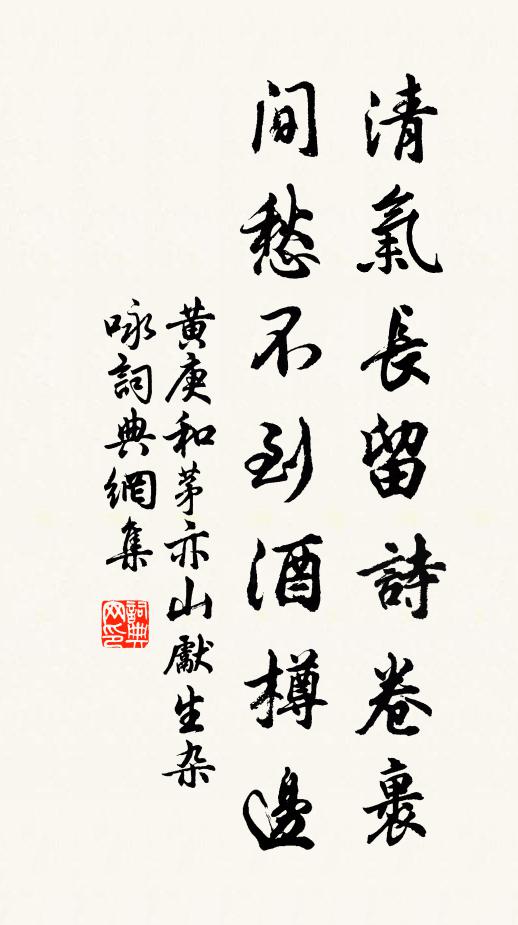 清氣長留詩卷裹
间愁不到酒樽邊
黄庚和茅亦山獻生杂
咏詞典網集
詞典
网印